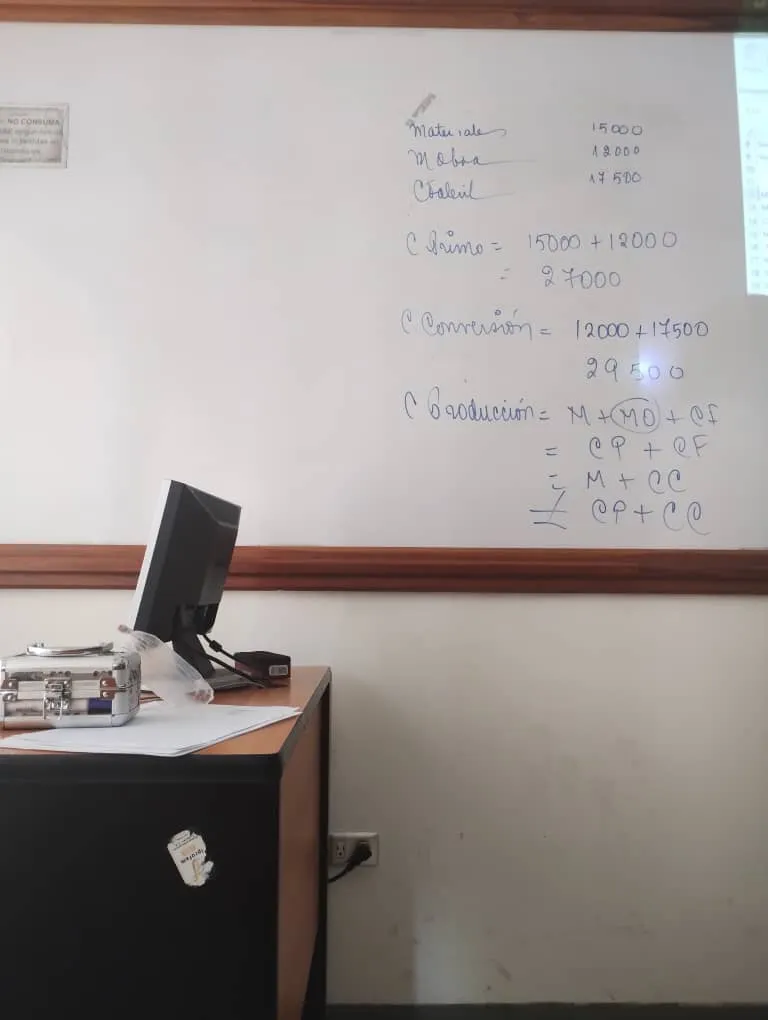 NO CONSUMA
Materiales 15000
M obra 12000
C Fabril 17500
C Primo = 15000 + 12000
= 27000
C Conversión = 12000 + 17500
29 500
C Producción = M + MO + CF
= CP + CF
= M + CC
≠ CP + CC